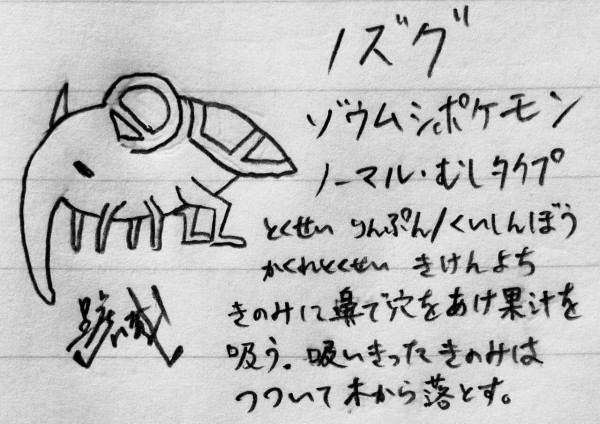 ノズグ
ゾウムシポケモン
ノーマル・むしタイプ
とくせい りんぷん/くいしんぼう
かくれとくせい きけんよち
きのみに鼻で穴をあけ果汁を
吸う。吸いきったきのみは
つついて木から落とす。